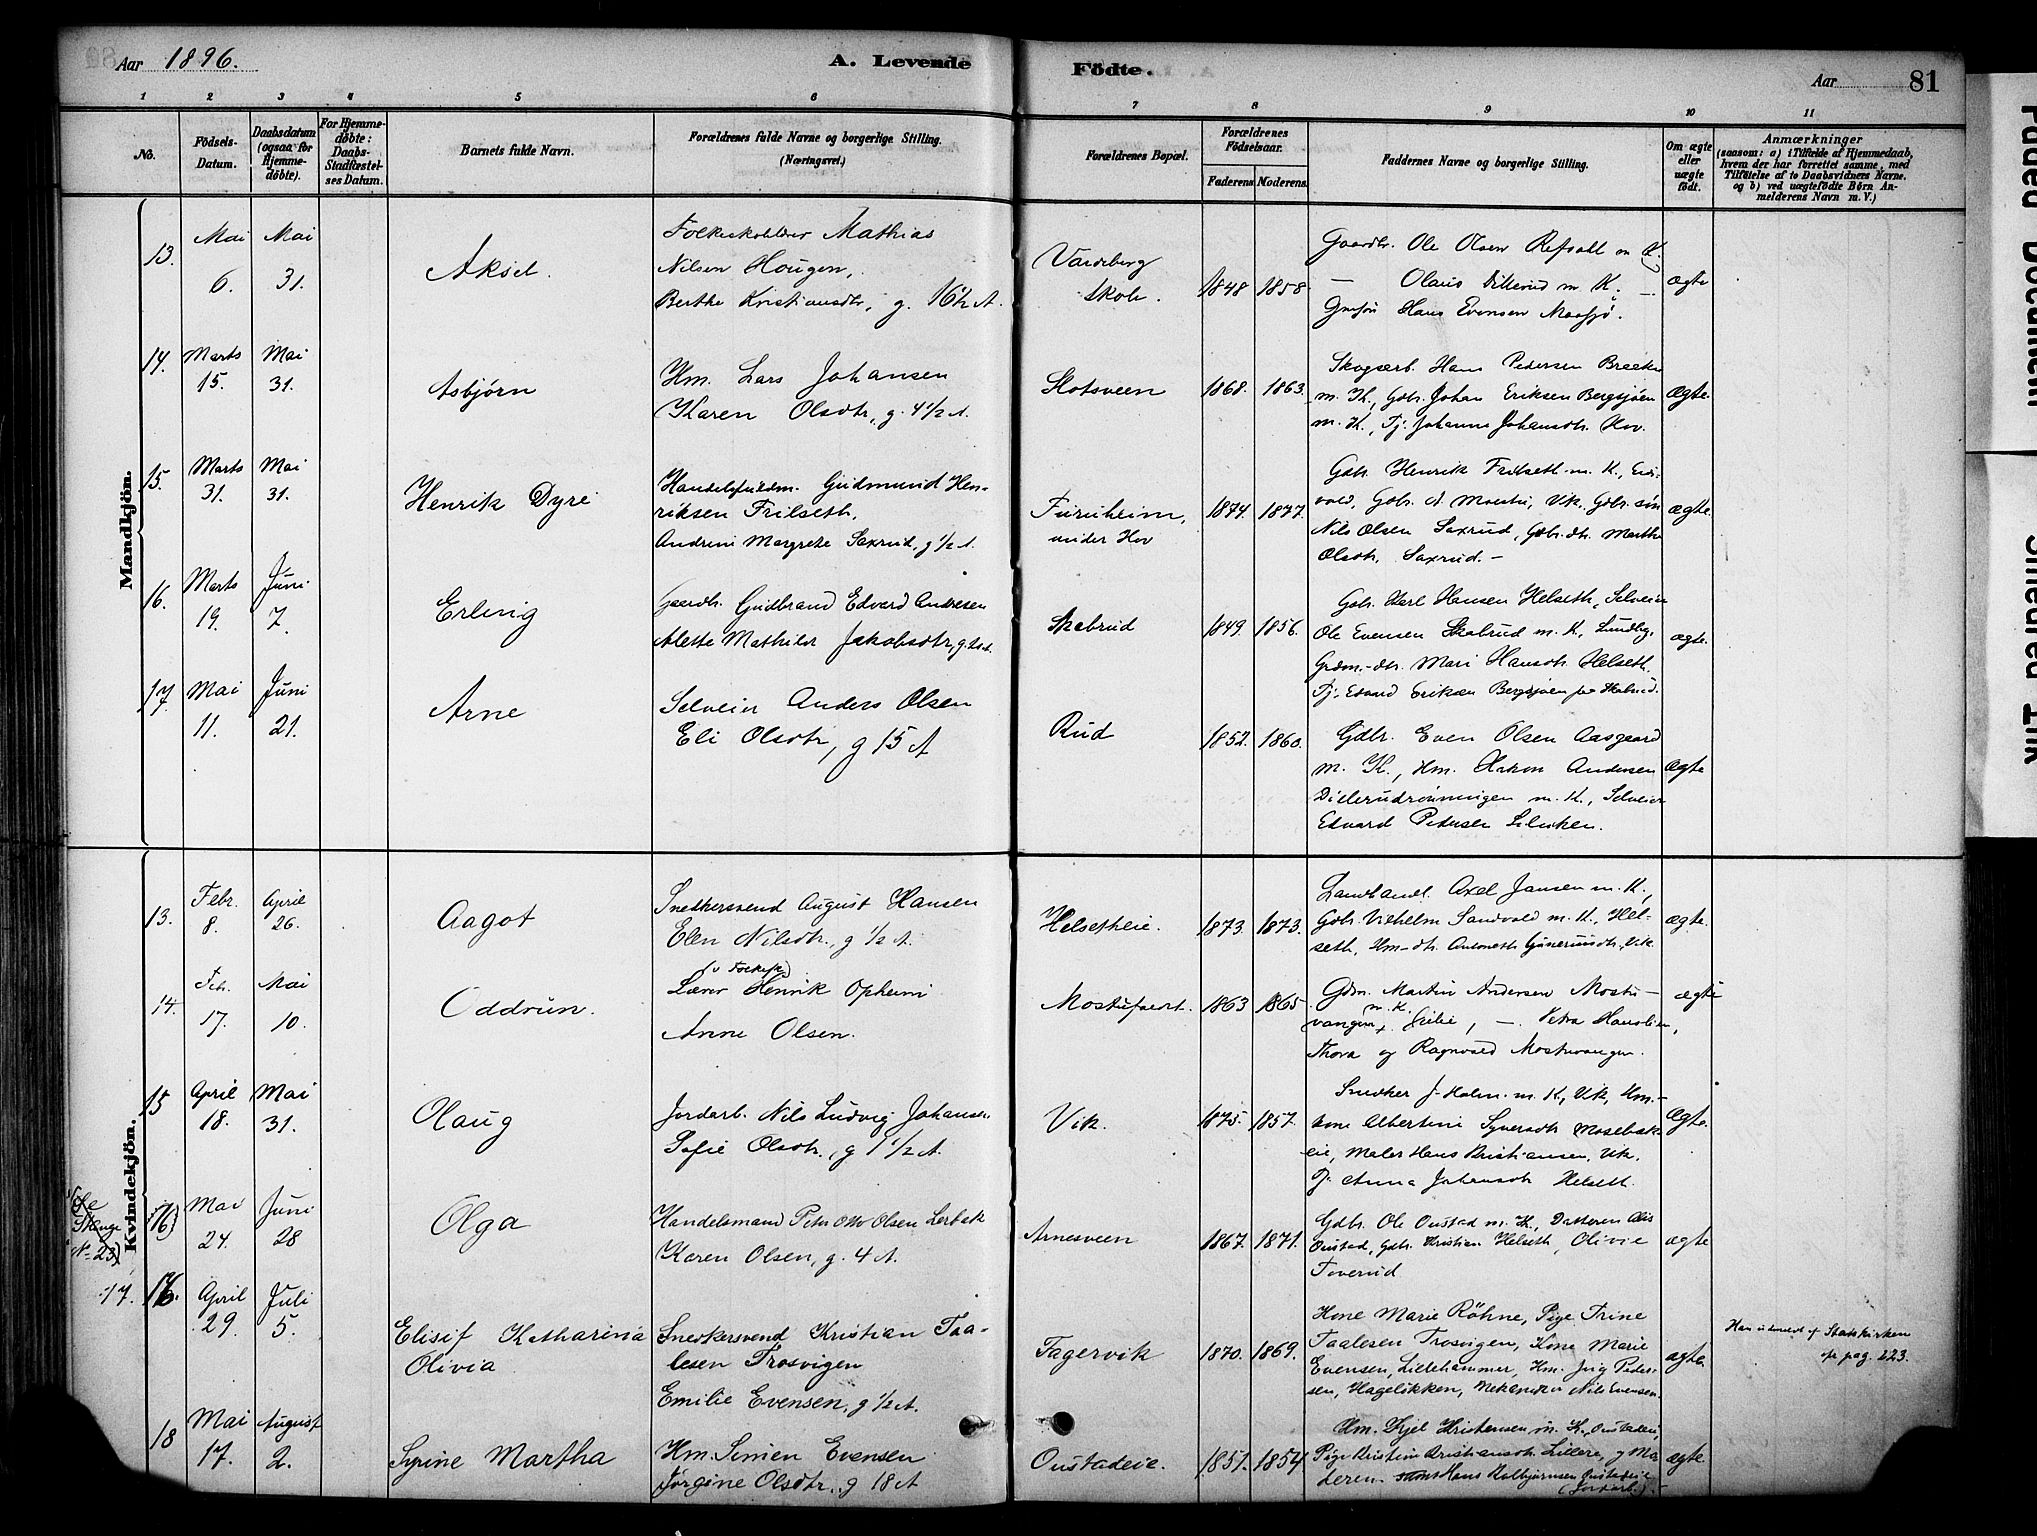 Aar 1896.
A. Levende
Födte.
Aar
81
1 2 3 4 5 6 7 8 9 10 11
No.
Födsels-
Datum.
Daabsdatum
(ogsaa for
Hjemme-
döbte).
For Hjemme-
döbte:
Daabs-
Stadfæstel-
ses Datum.
Barnets fulde Navn.
Forældrenes fulde Navne og borgerlige Stilling.
(Næringsvei.)
Forældrenes Bopæl.
Forældrenes
Födselsaar.
Faderens. Moderens.
Faddernes Navne og borgerlige Stilling.
Om ægte
eller
uægte
födt.
Anmærkninger
(saasom: a) i Tilfælde af Hjemmedaab,
hvem der har forrettet samme, med
Tilföielse af to Daabsvidners Navne,
og b) ved uægtefödte Börn An-
melderens Navn m. V.)
Mandkjön.
13.
Mai
6.
Mai
31.
Aksel.
Folkeskolelærer Mathias
Nilsen Hougen,
Berthe Kristiansdtr, g. 16½ A.
Vardeberg
Skole.
1848 1858.
Gaardbr. Ole Olsen Refsahl m K.
— Olaus Dillerud m K. —
Hans Evensen
ægte
14.
Marts
15.
Mai
31.
Asbjørn
Hm. Lars Johansen
Karen Olsdtr, g. 4½ A.
Slotsveen
1868. 1863.
Skogarb. Hans Pedersen
m. K., Gdbr. Johan Eriksen Bergsjøen
m. K., Tj. Johanne Johansdtr. Hov.
ægte.
15.
Marts
31.
Mai
31.
Henrik Dyre
Gudmund Hen-
riksen Frilseth,
Andrine Margrete Saxrud, g ½ A.
Furuheim,
under Hov
1874. 1877.
Gdb. Henrik Frilseth m. K., Eids-
vold, Gdbr. A Moestu, Vik, Gdbr. søn
Nils Olsen Saxrud, Gdbr. dtr. Marthe
Olsdtr, Saxrud. —
ægte.
16.
Marts
19.
Juni
7.
Erling
Gaardbr. Gudbrand Edvard Andresen
Alette Mathilde Jakobsdtr,
Skabrud
1849. 1856.
Gdbr. Karl Hansen Helseth, Selveier
Ole Evensen Skabrud m. K.,
Mari Hansdtr. Helseth.
Tj. Edvard Eriksen Bergsjøen
ægte.
17.
Mai
11.
Juni
21.
Arne
Selveier Anders Olsen
Eli Olsdtr, g 15 A
Rud
1852. 1860.
Gdbr. Even Olsen Aasgaard
m. K., Hm. Hakon Andersen
Dillerudrønningen m. K., Selveier
Edvard Pedersen
ægte
Kvindekjön.
13.
Febr.
8.
April
26.
Aagot
Snedkersvend August Hansen
Elen Nilsdtr., g ½ A.
Helsetheie.
1873. 1873.
Landhandl. Axel Jansen m. K.,
Gdbr. Vilhelm Sandvold m. K., Hel-
seth, Hm-dtr. Vik
ægte.
14.
Feb.
17.
Mai
10.
Oddrun.
Lærer Henrik Opheim
Anne Olsen.
1863 1865
Gdm. Martin Andersen Mostu-
vangen m. K.
Thora og Ragnvald Mostuvangen.
ægte
15
April
18.
Mai
31.
Olaug
Jordarb. Nils Ludvig Johansen
Sofie Olsdtr., g 1 ½ A.
Vik.
1875. 1857.
Snedker J. Holm. m. K, Vik, Hm.-
kone Albertine Syversdtr Mosebak-
eie, Maler Hans Kristiansen, Vik.
Tj. Anna Johansdtr Helseth.
Ægte.
Se
No 23)
16)
Mai
24.
Juni
28
Olga
Handelsmand Peter Otto Olsen Lerbak
Karen Olsen, g. 4 A.
Arnesveen
1867. 1871.
Gdbr. Ole Oustad m. K., Datteren
Oustad, Gdbr. Kristian Helseth, Olivie
Toverud
ægte
17. 16.
April
29.
Juli
5.
Elisif Katharina
Olivia
Snedkersvend Kristian Taa-
lesen Trosvigen
Emilie Evensen, g ½ A.
Fagervik
1870. 1869.
Kone Marie Röhne, Pige Trine
Taalesen Trosvigen, Kone Marie
Evensen, Lillehammer, Hm. Peder-
sen, Hageløkken, Nils Evensen.
ægte.
Statskirken
pag. 223.
18
Mai
17.
August
2.
Syrine Martha
Hm. Simen Evensen
Jørgine Olsdtr., g 18 A
Oustadeie.
1851. 1854
Hm. Kjel Kristensen m. K., Oustadeie,
Pige Kristine Kristiansdtr. og Mo-
deren. Hans Kolbjørnsen Oustadeie
(Jordarb.). —
ægte.
Faded Document
Smeared Ink